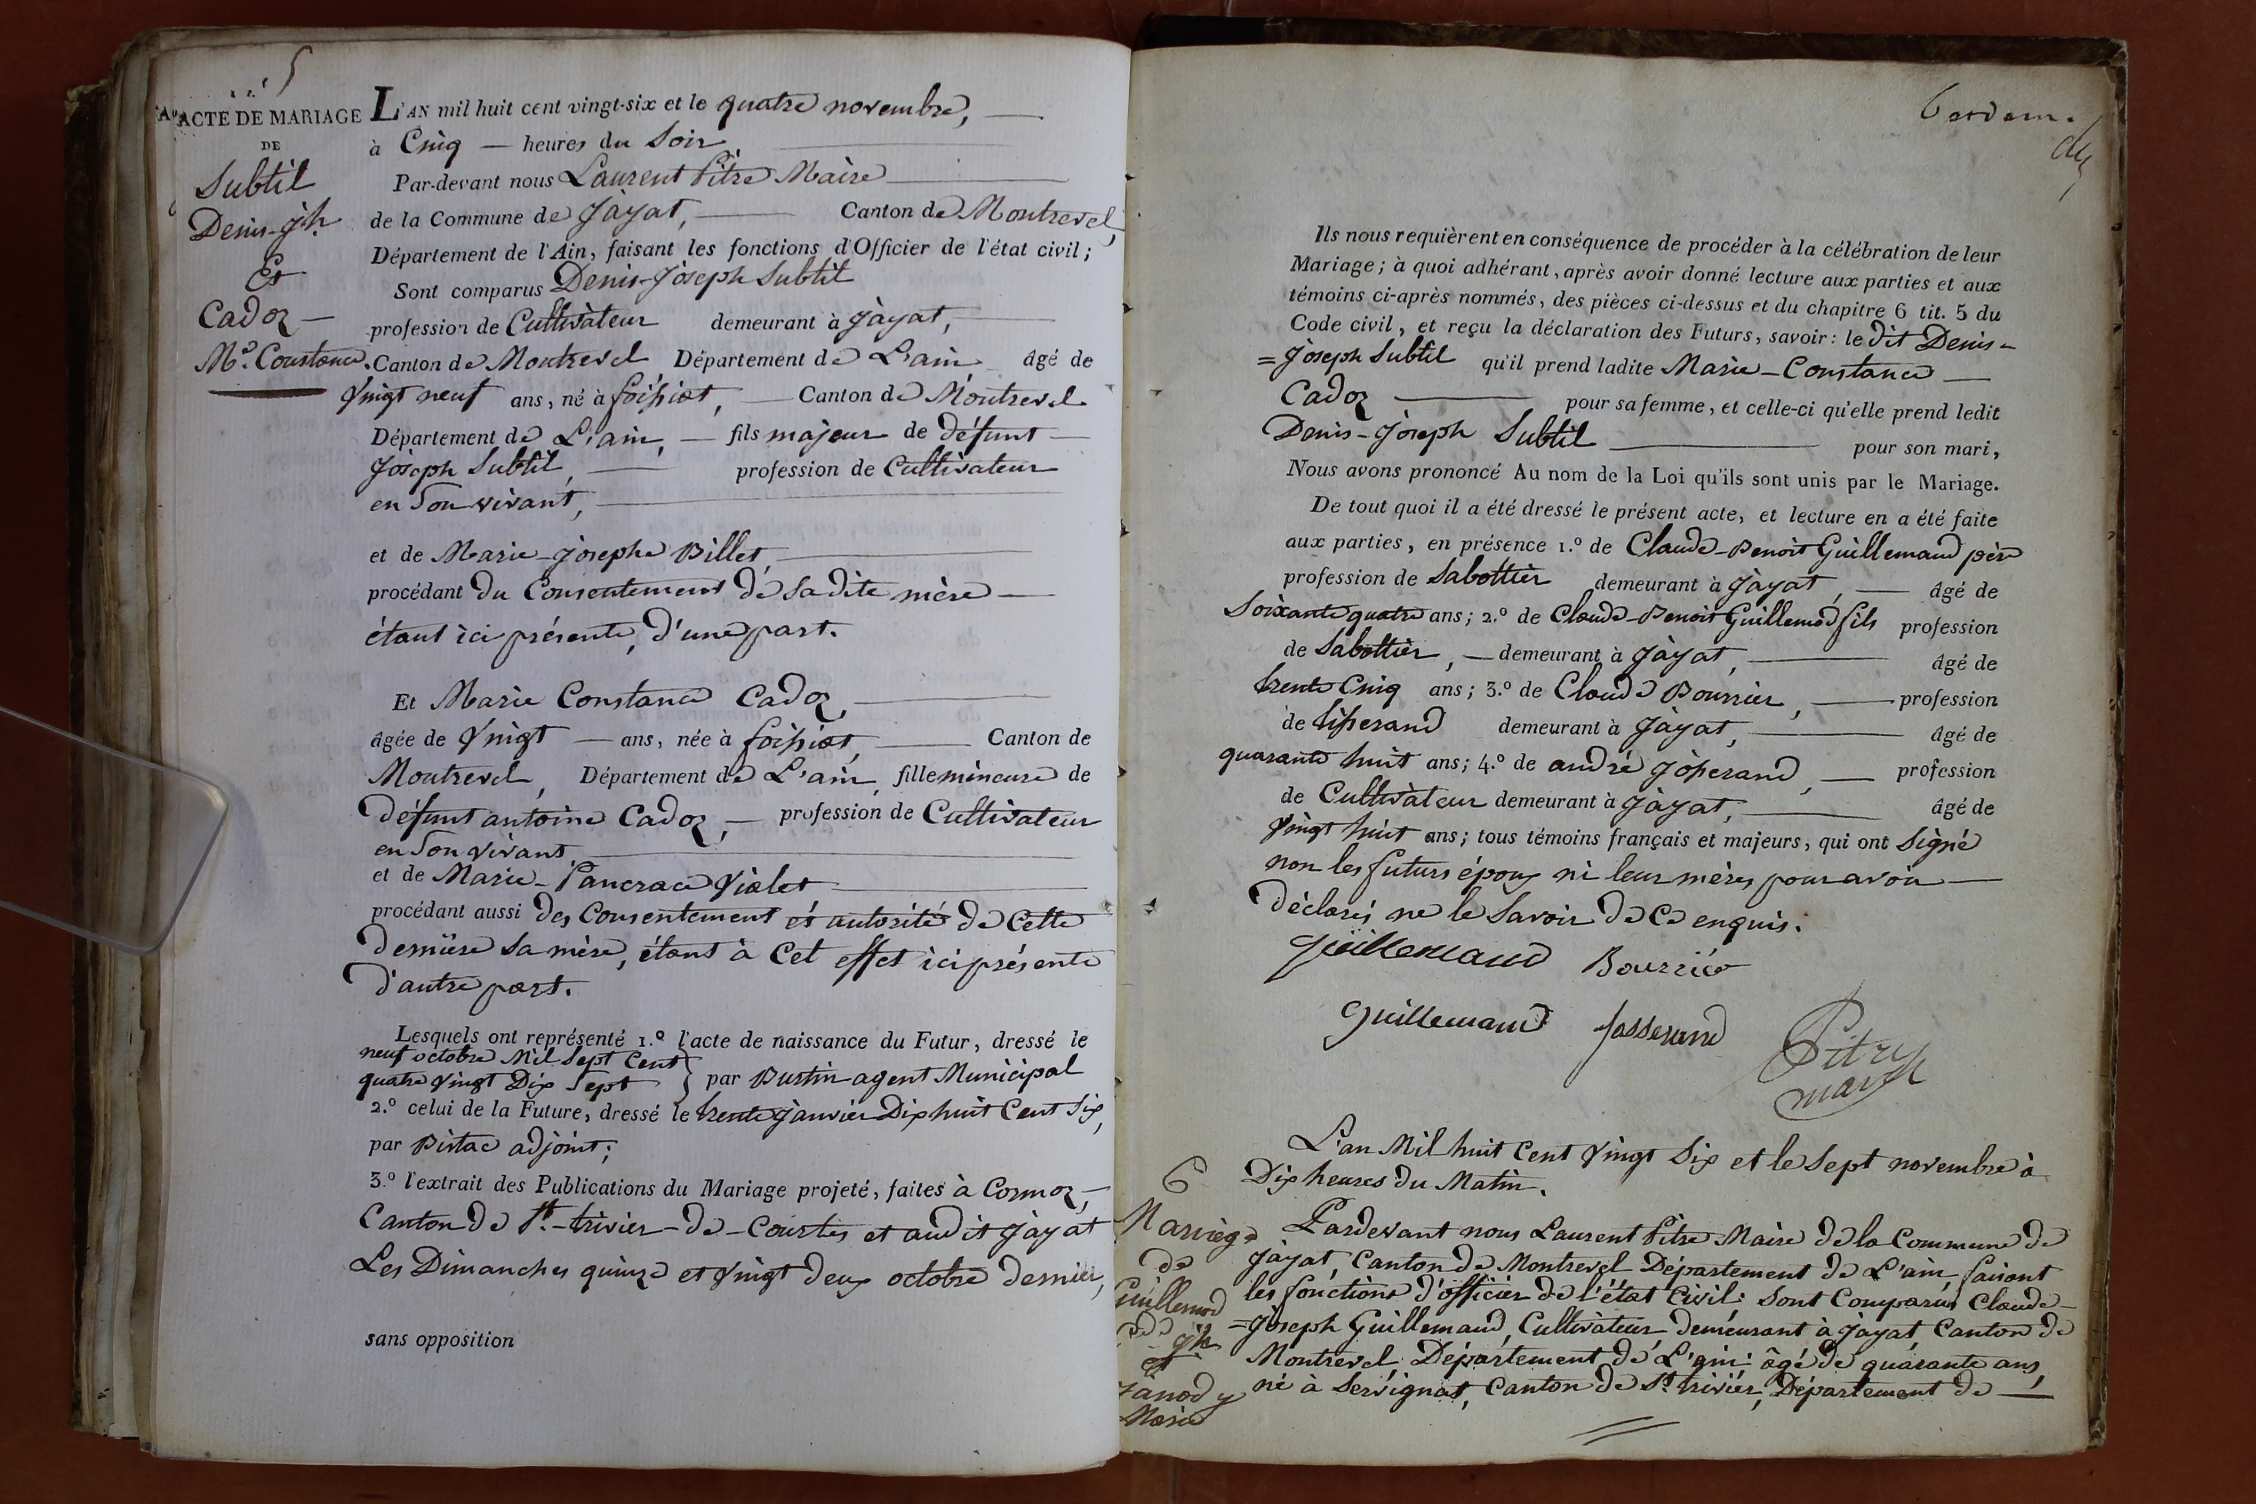 5
ACTE DE MARIAGE
DE
Subtil
Denis-Jh.
Et
Cadoz
Me. Constance.
L'AN mil huit cent vingt-six et le quatre novembre,
à Cinq heures du Soir
Par-devant nous Laurent Pitre Maire
de la Commune de Jayat, Canton de Montrevel,
Département de l'Ain, faisant les fonctions d'Officier de l'état civil;
Sont comparus Denis-Joseph Subtil
profession de Cultivateur demeurant à Jayat,
Canton de Montrevel Département de L'ain âgé de
vingt neuf ans, né à foissiat, Canton de Montrevel
Département de L'ain, fils majeur de défunt
Joseph Subtil, profession de Cultivateur
en Son vivant,
et de Marie-Josephe Billet,
procédant du Consentement de Sadite mère
étant ici présente, d'une part.
Et Marie Constance Cadoz,
âgée de vingt ans, née à foissiat, Canton de
Montrevel, Département de L'ain, fille mineure de
défunt antoine Cadoz, profession de Cultivateur
en Son vivant
et de Marie-Pancrace Vialet
procédant aussi des Consentement et autorité de Cette
dernière Sa mère, étant à Cet effet ici présente
d'autre part.
Lesquels ont représenté 1.º l'acte de naissance du Futur, dressé le
neuf octobre Mil Sept Cent
quatre vingt Dix Sept } par Bustin agent Municipal
2.º celui de la Future, dressé le trente janvier Dix huit Cent Six,
par Pistac adjoint;
3.º l'extrait des Publications du Mariage projeté, faites à Cormoz,
Canton de St.-trivier-de-Courtes et audit Jayat
Les Dimanches quinze et vingt deux octobre dernier,
sans opposition
Ils nous requièrent en conséquence de procéder à la célébration de leur
Mariage; à quoi adhérant, après avoir donné lecture aux parties et aux
témoins ci-après nommés, des pièces ci-dessus et du chapitre 6 tit. 5 du
Code civil, et reçu la déclaration des Futurs, savoir: le dit Denis-
=Joseph Subtil qu'il prend ladite Marie-Constance
Cadoz pour sa femme, et celle-ci qu'elle prend ledit
Denis-Joseph Subtil pour son mari,
Nous avons prononcé Au nom de la Loi qu'ils sont unis par le Mariage.
De tout quoi il a été dressé le présent acte, et lecture en a été faite
aux parties, en présence 1.º de Claude-Benoit Guillemaud père
profession de Sabottier demeurant à Jayat, âgé de
Soixante quatre ans; 2.º de Claude-Benoit Guillemod fils profession
de Sabottier, demeurant à Jayat, âgé de
trente Cinq ans; 3.º de Claude Bourrier, profession
de tisserand demeurant à Jayat, âgé de
quarante huit ans; 4.º de andré Josserand, profession
de Cultivateur demeurant à Jayat, âgé de
vingt huit ans; tous témoins français et majeurs, qui ont Signé
non les futurs époux ni leur mères pour avoir
déclarés ne le Savoir de Ce enquis.
Guillemaud Bourrier
guillemaud Josserand Pitre
maire
L'an Mil huit Cent vingt Six et le Sept novembre à
Dix heures du Matin.
6
Mariage
de
Guillemod
Cde Jh
et
Janody
Marie
Pardevant nous Laurent Pitre Maire de la Commune de
Jayat, Canton de Montrevel Département de L'ain, faisant
les fonctions d'officier de l'état Civil: Sont Comparus Claude-
=Joseph Guillemaud, Cultivateur demeurant à Jayat Canton de
Montrevel Département de L'ain: âgé de quarante ans,
né à Servignat, Canton de St. trivier, Département de